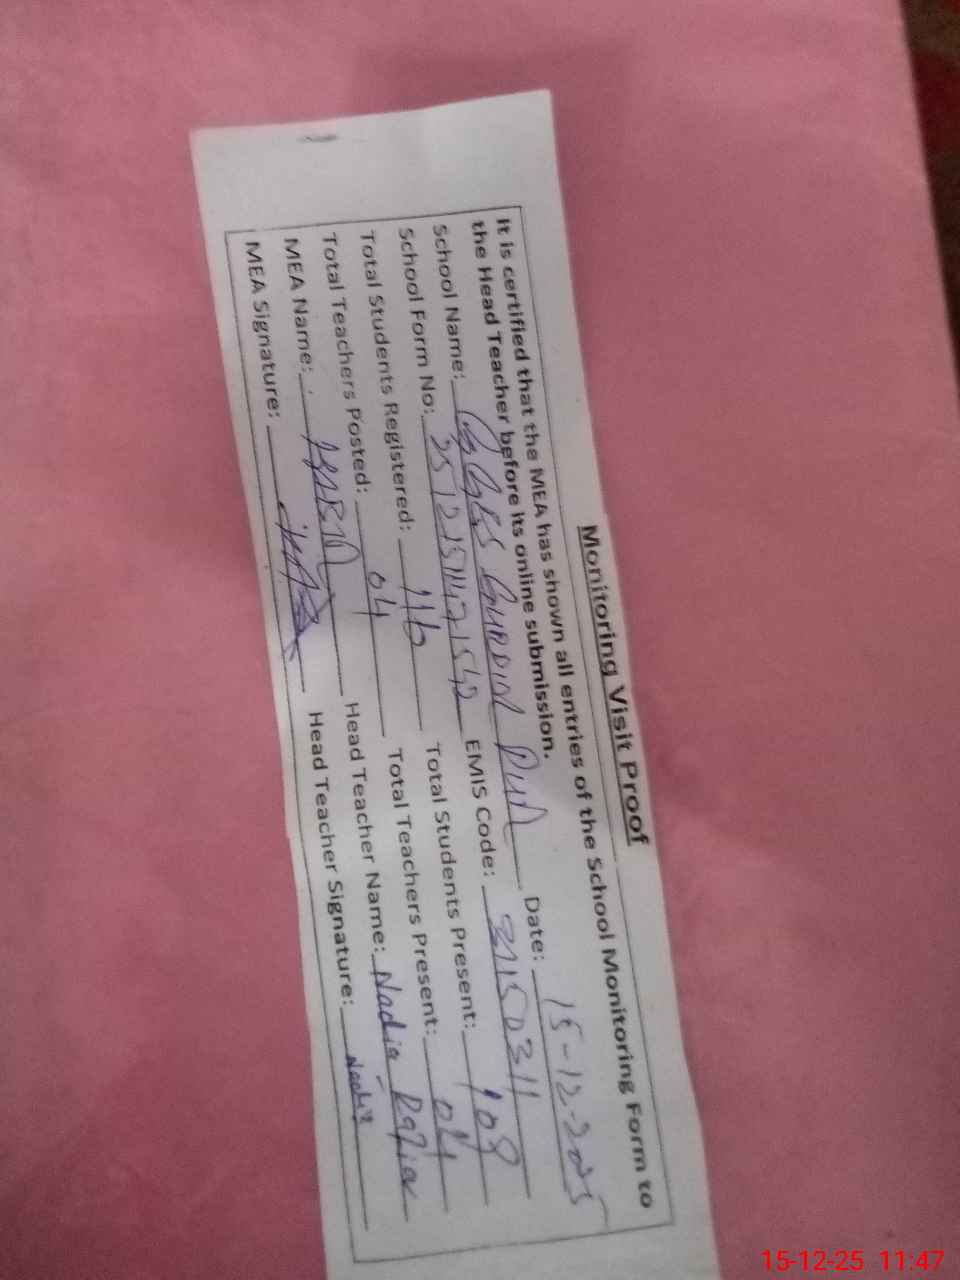 Monitoring Visit Proof
It is certified that the MEA has shown all entries of the School Monitoring Form to
the Head Teacher before its online submission.
School Name: GGES Date: 15-12-2025
School Form No: EMIS Code:
Total Students Registered: 116 Total Students Present: 108
Total Teachers Posted: 04 Total Teachers Present: 04
MEA Name: Head Teacher Name: Nadia
MEA Signature: Head Teacher Signature: Nadia
15-12-25 11:47